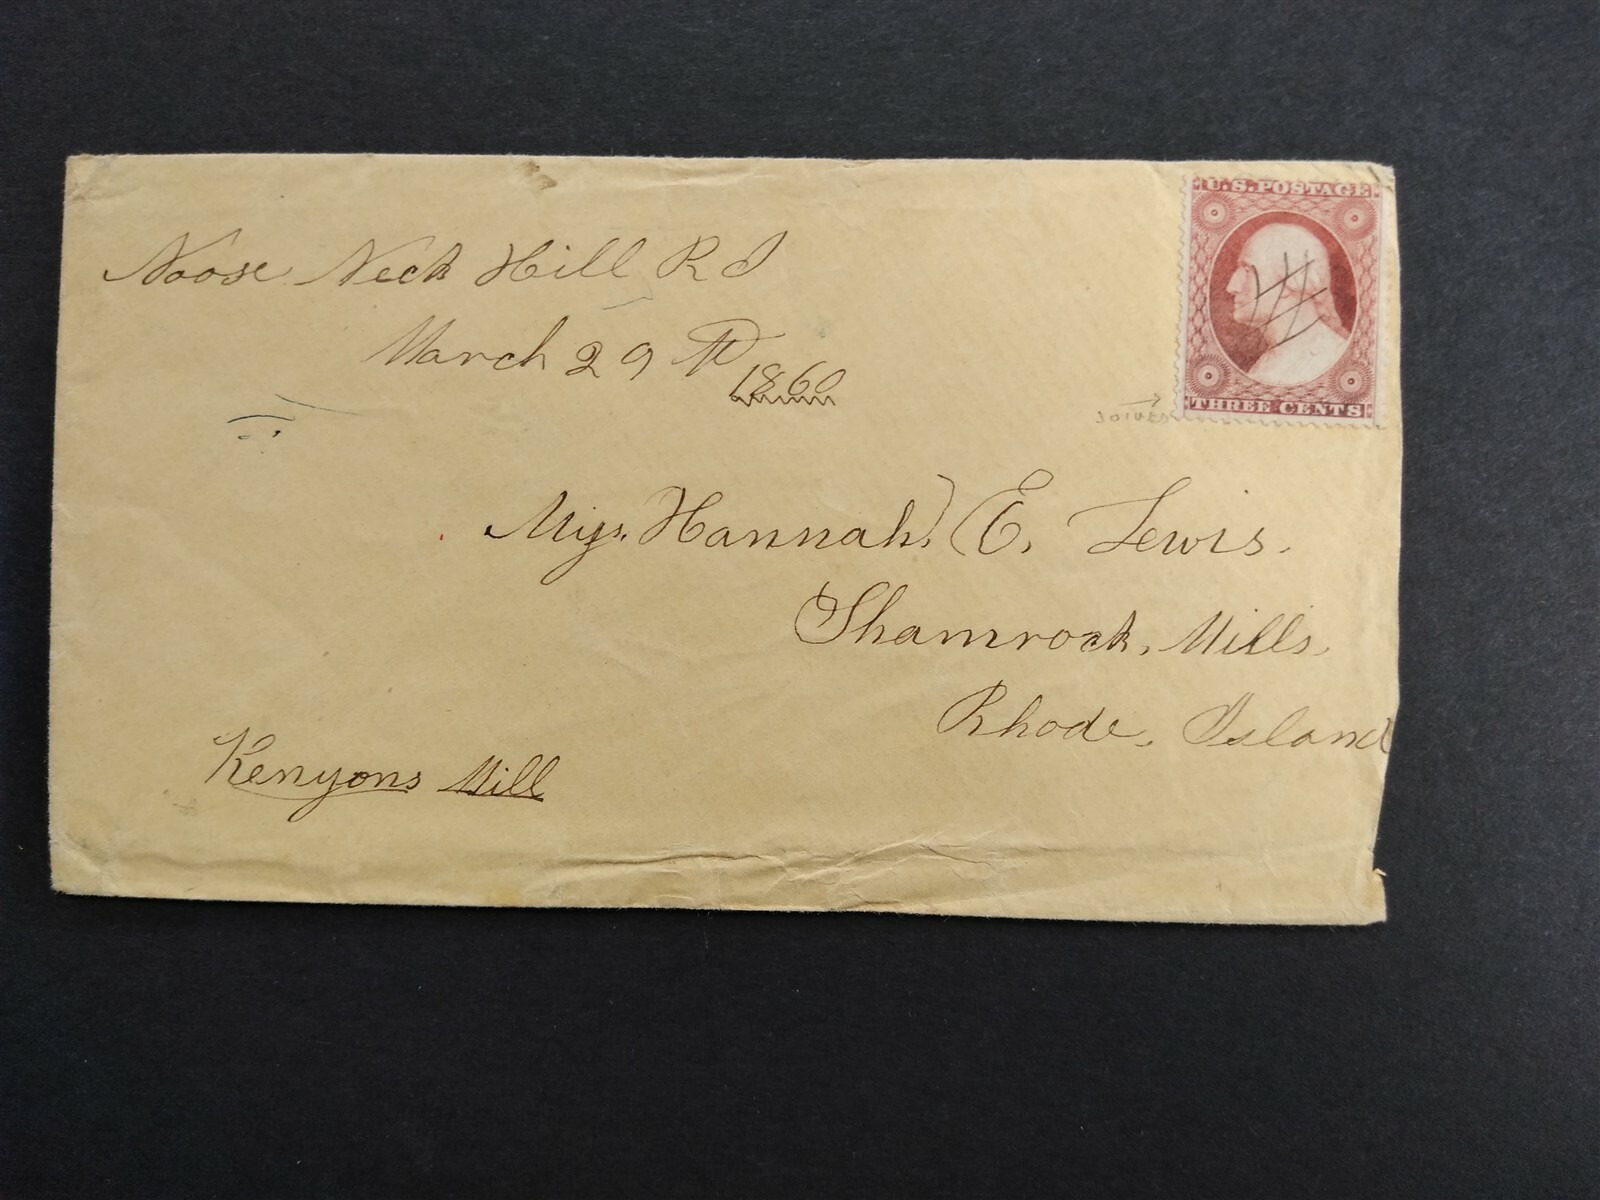 Noose Neck Hill R I
March 29th
1860
U.S. POSTAGE
THREE CENTS
Miss. Hannah. E. Lewis.
Shamrock, Mills.
Rhode, Island
Kenyons Mill